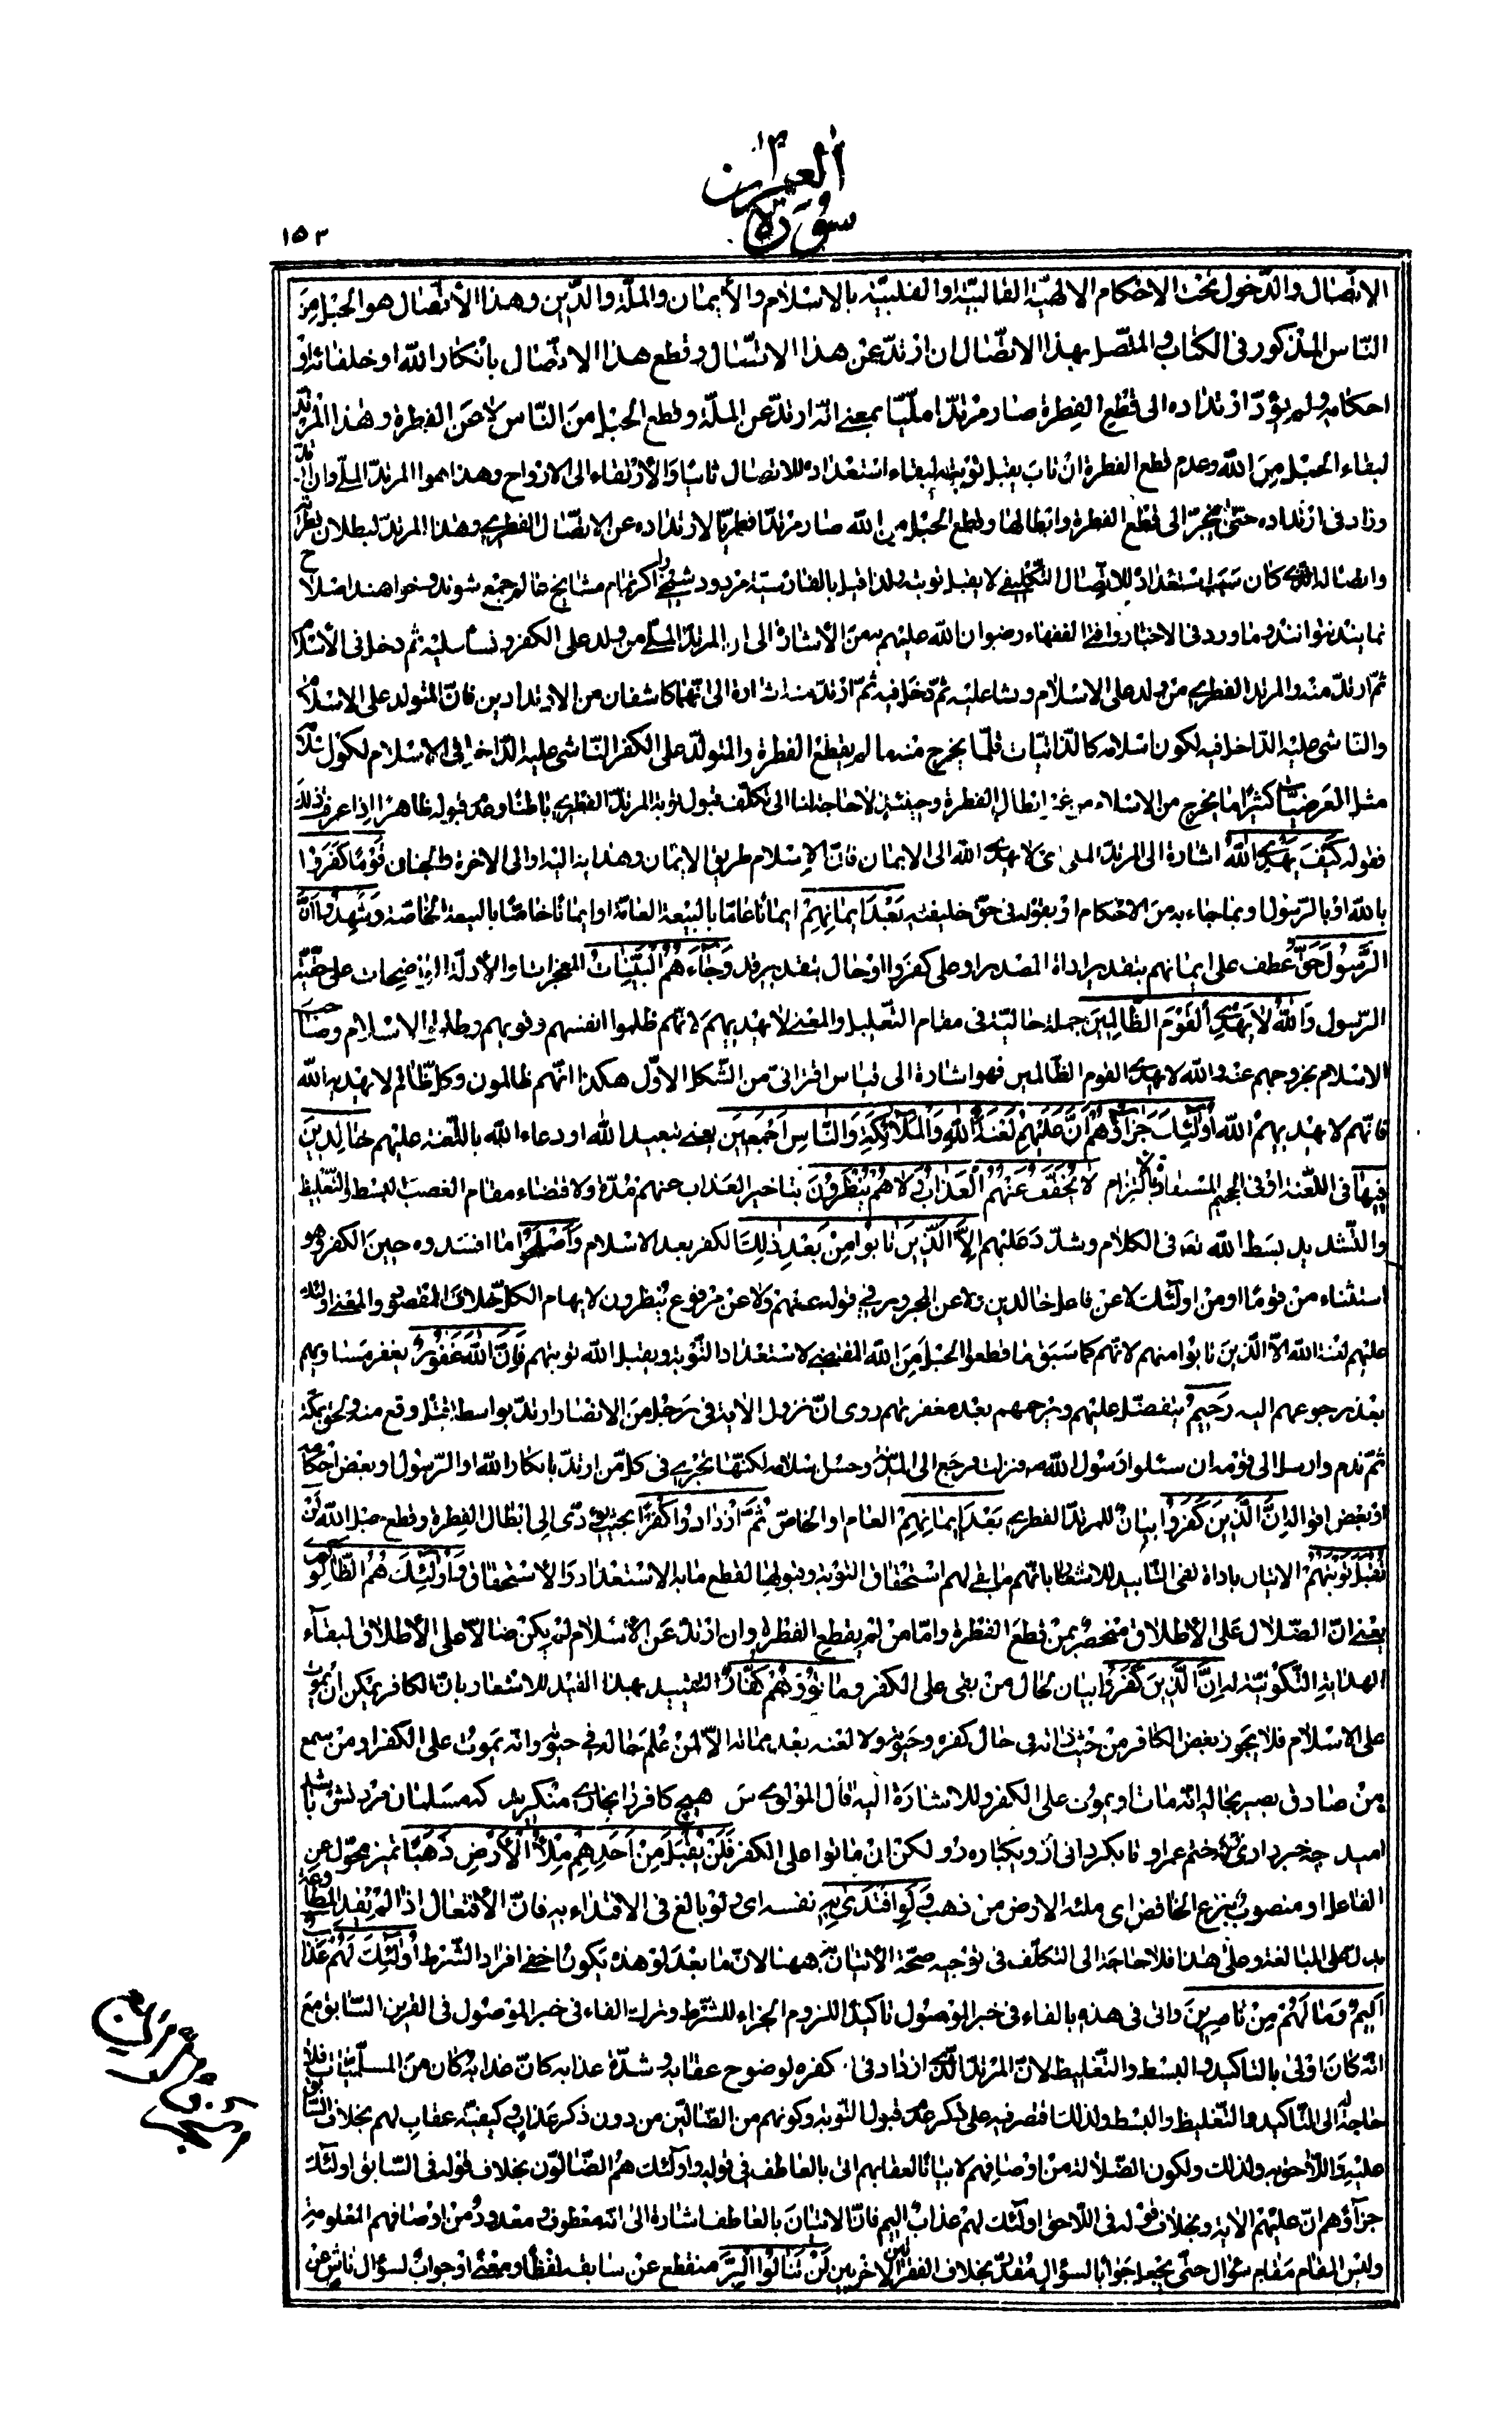 سورة آل عمران ٣
١٥٣
الاتّصال والدّخول تحت الاحكام الالهيّة القالبيّة او القلبيّة بالاسلام والأيمان والملّة والدّين وهذا الأتّصال هو الحبل من
النّاس المذكور فى الكتاب والمتّصل بهذا الاتّصال ان ارتدّ عن هذا الاتّصال وقطع هذا الاتّصال بانكار الله او خلفائه او
احكامه ولم يؤدّ ارتداده الى قطع الفطرة صار مرتدّا ملّيّا بمعنى انّه ارتدّ عن الملّة وقطع الحبل من النّاس لا عن الفطرة وهذا المرتدّ
لبقاء الحبل من الله وعدم قطع الفطرة ان تاب يقبل توبته لبقاء استعداده للاتصال ثانيا والأرتقاء الى الارواح وهذا هو المرتدّ الملّى وان ارتدّ
وزاد فى ارتداده حتّى ينجرّ الى قطع الفطرة وابطالها وقطع الحبل من الله صار مرتدّا فطريّا لارتداده عن الاتّصال الفطرى وهذا المرتدّ لبطلان فطرته
واتصاله الّذى كان سبب استعداده للاتّصال التّكليفى لا يقبل توبته ولذا قيل بالفارسيّة مردود شيخى را اكر تمام مشايخ عالم جمع شوند وخواهند اصلاح
نمايند نتوانند وما ورد فى الاخبار وافتى الفقهاء رضوان الله عليهم به من الأشارة الى ان المرتدّ الملّى من ولد على الكفر ونسأ عليه ثم دخل فى الأسلام
ثمّ ارتدّ منه والمرتد الفطرى من ولد على الاسلام ونشا عليه ثمّ دخل فيه ثمّ ارتدّ منه اشارة الى انّهما كاشفان من الارتدادين فانّ المتولد على الاسلام
والناشى عليه الدّاخل فيه لكون اسلامه كالذّاتيّات قلّما يخرج منه ما لم يقطع الفطرة والمتولّد على الكفر النّاشى عليه الدّاخل فى الاسلام لكون اسلامه
مثل العرضيّات كثيرا ما يخرج من الاسلام من غير ابطال الفطرة وحينئذ لا حاجة لنا الى تكلّف قبول توبة المرتدّ الفطرى باطنا وعدم قبوله ظاهرا اذا عرفت ذلك
فقوله كَيْفَ يَهْدِى اللهُ اشارة الى المرتدّ الملى اى لا يهدى الله الى الايمان فانّ الاسلام طريق الايمان وهداية اليه او الى الاخرة والجنان قَوْمًا كَفَرُوا
بالله او بالرّسول وبما جاء به من الاحكام او بقوله فى حقّ خليفته بَعْدَ ايمانِهِمْ ايمانًا عامّا بالبيعة العامّة او ايمانًا خاصّا بالبيعة الخاصّة وَشَهِدُوا اَنَّ
الرَّسُولَ حَقٌّ عطف على ايمانهم بتقدير اداة المصدر او على كفروا او حال بتقدير قد وَجاءَهُمُ الْبَيِّناتُ المعجزات والأدلّة الواضحات على حقّيّة
الرّسول وَاللهُ لا يَهْدِى الْقَوْمَ الظّالِمِينَ جملة حاليّة فى مقام التّعليل والمعنى لا يهديهم لانّهم ظلموا انفسهم وقويهم وظلموا الاسلام وصاحب
الاسلام بخروجهم عنه والله لا يهدى القوم الظالمين فهو اشارة الى قياس اقترانىّ من الشّكل الاوّل هكذا انّهم ظالمون وكلّ ظالم لا يهديه الله
فانّهم لا يهديهم الله اُولئِكَ جَزاؤُهُمْ اَنَّ عَلَيْهِمْ لَعْنَةَ اللهِ وَالْمَلائِكَةِ وَالنّاسِ اَجْمَعِينَ يعنى تبعيد الله او دعاء الله باللّعنة عليهم خالِدِينَ
فِيها فى اللّعنة او فى الجحيم المستفاد بالالتزام لا يُخَفَّفُ عَنْهُمُ الْعَذابُ وَلا هُمْ يُنْظَرُونَ بتاخير العذاب عنهم مدّة ولاقتضاء مقام الغضب للبسط والتّغليظ
والتّشديد بسط الله تعالى فى الكلام وشدّد عليهم اِلاَّ الَّذِينَ تابُوا مِنْ بَعْدِ ذلِكَ الكفر بعد الاسلام وَاَصْلَحُوا ما افسدوه حين الكفر وهو
استثناء من قومًا او من اولئك لا عن فاعل خالدين ولا عن المجرور فى قوله عنهم ولا عن مرفوع ينظرون لايهام الكلّ خلاف المقصود والمعنى اولئك
عليهم لعنة الله الاّ الّذين تابوا منهم لانّهم كما سبق ما قطعوا الحبل من الله المقتضى لاستعداد التّوبة ويقبل الله توبتهم فَاِنَّ اللهَ غَفُورٌ يغفر مساويهم
بعد رجوعهم اليه رَحِيمٌ يتفضّل عليهم ويرحمهم بعد مغفرتهم روى انّ نزول الآية فى رجل من الانصار ارتدّ بواسطة قتل وقع منه ولحق بمكّة
ثمّ ندم وارسل الى قومه ان سئلوا رسول الله ص فنزلت فرجع الى المدينة وحسن اسلامه لكنّها تجرى فى كلّ من ارتدّ بانكار الله او الرّسول او بعض احكامه
او بعض اقواله اِنَّ الَّذِينَ كَفَرُوا بيان للمرتدّ الفطرى بَعْدَ ايمانِهِمْ العام او الخاصّ ثُمَّ ازْدادُوا كُفْرًا بحيث يؤدّى الى ابطال الفطرة وقطع حبل الله لَنْ
تُقْبَلَ تَوْبَتُهُمْ الاتيان باداة نفى التّأبيد للاشعار بانّهم ما بقى لهم استحقاق التوبة وقبولها لقطع ما به الاستعداد والأستحقاق وَاُولئِكَ هُمُ الضّالُّونَ
يعنى انّ الضّلال على الأطلاق منحصر بمن قطع الفطرة وامّا من لم يقطع الفطرة وان ارتدّ عن الأسلام لم يكن ضالاّ على الأطلاق لبقاء
الهداية التّكوينيّة له اِنَّ الَّذِينَ كَفَرُوا بيان لحال من بقى على الكفر وَماتُوا وَهُمْ كُفّارٌ التقييد بهذا القيد للاشعار بانّ الكافر يمكن ان يموت
على الاسلام فلا يجوز بغض الكافر من حيث ذاته فى حال كفره وحيوته ولا لعنه بعد مماته الاّ لمن علم حاله فى حيوته وانّه يموت على الكفر او من سمع
من صادق بصير بحاله انّه مات او يموت على الكفر وللاشارة اليه قال المولوى س هيچ كافر را بخارى منكريد كه مسلمان مردنش باشد
اميد چه خبر دارى ز ختم عمر او تا بگردانى از او يكباره رو ولكن ان ماتوا على الكفر فَلَنْ يُقْبَلَ مِنْ اَحَدِهِمْ مِلْأُ الْاَرْضِ ذَهَبًا تميز محوّل عن
الفاعل او منصوب بنزع الخافض اى ملئه الارض من ذهب وَلَوِ افْتَدى بِهِ نفسه اى ولو بالغ فى الافتداء به فانّ الأفتعال اذا لم يفد المطاوعة
يدلّ على المبالغة وعلى هذا فلا حاجة الى التكلّف فى توجيه صحّة الأتيان به ههنا لانّ ما بعد لو هذه يكون اخفى افراد الشّرط اُولئِكَ لَهُمْ عَذابٌ
اَلِيمٌ وَما لَهُمْ مِنْ ناصِرِينَ واتى فى هذه بالفاء فى خبر الموصول تأكيدا للزوم الجزاء للشّرط وترك الفاء فى خبر الموصول فى القرين السّابق مع
انّه كان اولى بالتاكيد والبسط والتّغليظ لانّ المرتدّ الّذى ازداد فى كفره لوضوح عقابه وشدّة عذابه كانّ عذابه كان من المسلّمات فلا
حاجة له الى التّاكيد والتّغليظ والبسط ولذلك اقتصر فيه على ذكر عدم قبول التوبة وكونهم من الضّالّين من دون ذكر عذاب وكيفيّة عقاب لهم بخلاف السّابق
عليه واللّاحق به ولذلك ولكون الضّلالة من اوصافهم لا بيانًا لعقابهم اتى بالعاطف فى قوله واولئك هم الضّالّون بخلاف قوله فى السّابق اولئك
جزآؤهم انّ عليهم الاية وبخلاف قوله فى اللّاحق اولئك لهم عذاب اليم فانّ الاتيان بالعاطف اشارة الى انّه معطوف ومعدود من اوصافهم المعلومة
وليس المقام مقام سؤال حتّى يجعل جوابًا لسؤال مقدّر بخلاف الفقرتين الاخريين لَنْ تَنالُوا الْبِرَّ منقطع عن سابقه لفظًا ومعنى او جواب لسؤال ناش عن